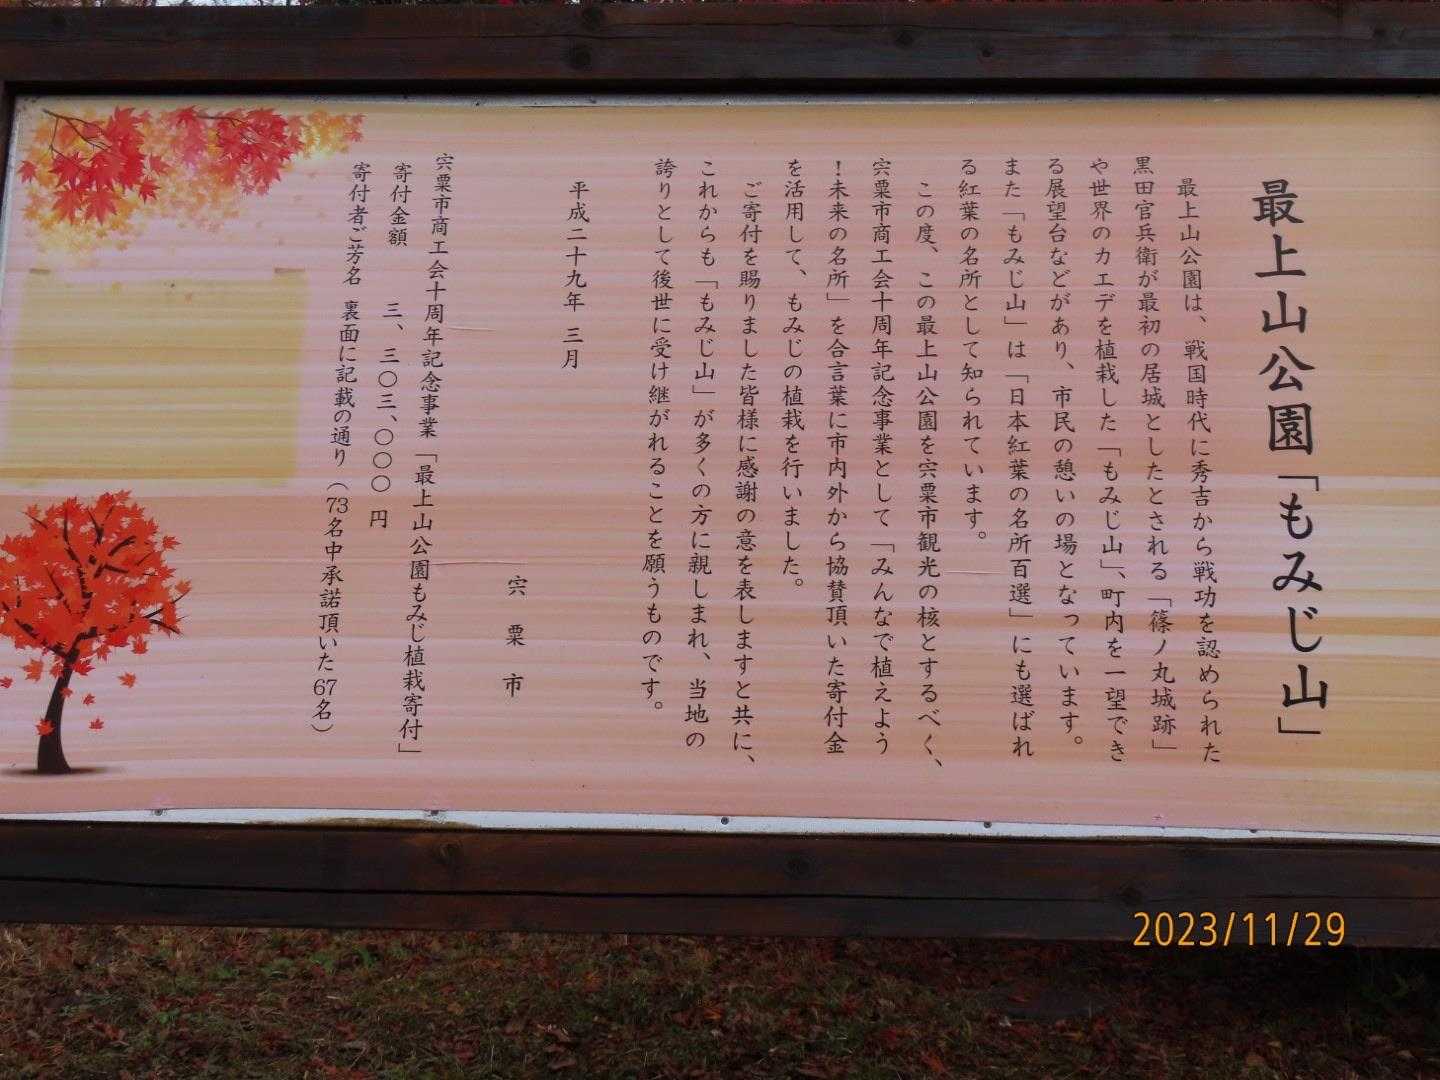 最上山公園「もみじ山」
最上山公園は、戦国時代に秀吉から戦功を認められた
黒田官兵衛が最初の居城としたとされる「篠ノ丸城跡」
や世界のカエデを植栽した「もみじ山」、町内を一望でき
る展望台などがあり、市民の憩いの場となっています。
また「もみじ山」は「日本紅葉の名所百選」にも選ばれ
る紅葉の名所として知られています。
この度、この最上山公園を宍粟市観光の核とするべく、
宍粟市商工会十周年記念事業として「みんなで植えよう
！未来の名所」を合言葉に市内外から協賛頂いた寄付金
を活用して、もみじの植栽を行いました。
ご寄付を賜りました皆様に感謝の意を表しますと共に、
これからも「もみじ山」が多くの方に親しまれ、当地の
誇りとして後世に受け継がれることを願うものです。
平成二十九年 三月
宍粟市
宍粟市商工会十周年記念事業「最上山公園もみじ植栽寄付」
寄付金額 三、三〇三、〇〇〇 円
寄付者ご芳名 裏面に記載の通り（73名中承諾頂いた67名）
2023/11/29